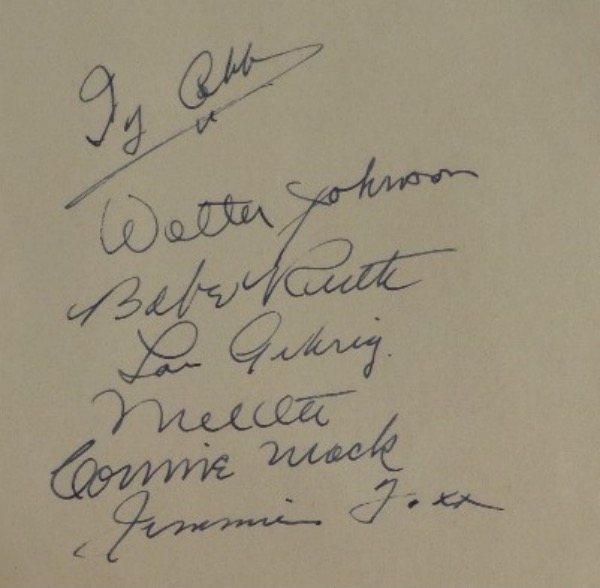 Ty Cobb
Walter Johnson
Babe Ruth
Lou Gehrig
Mel Ott
Connie Mack
Jimmie Foxx